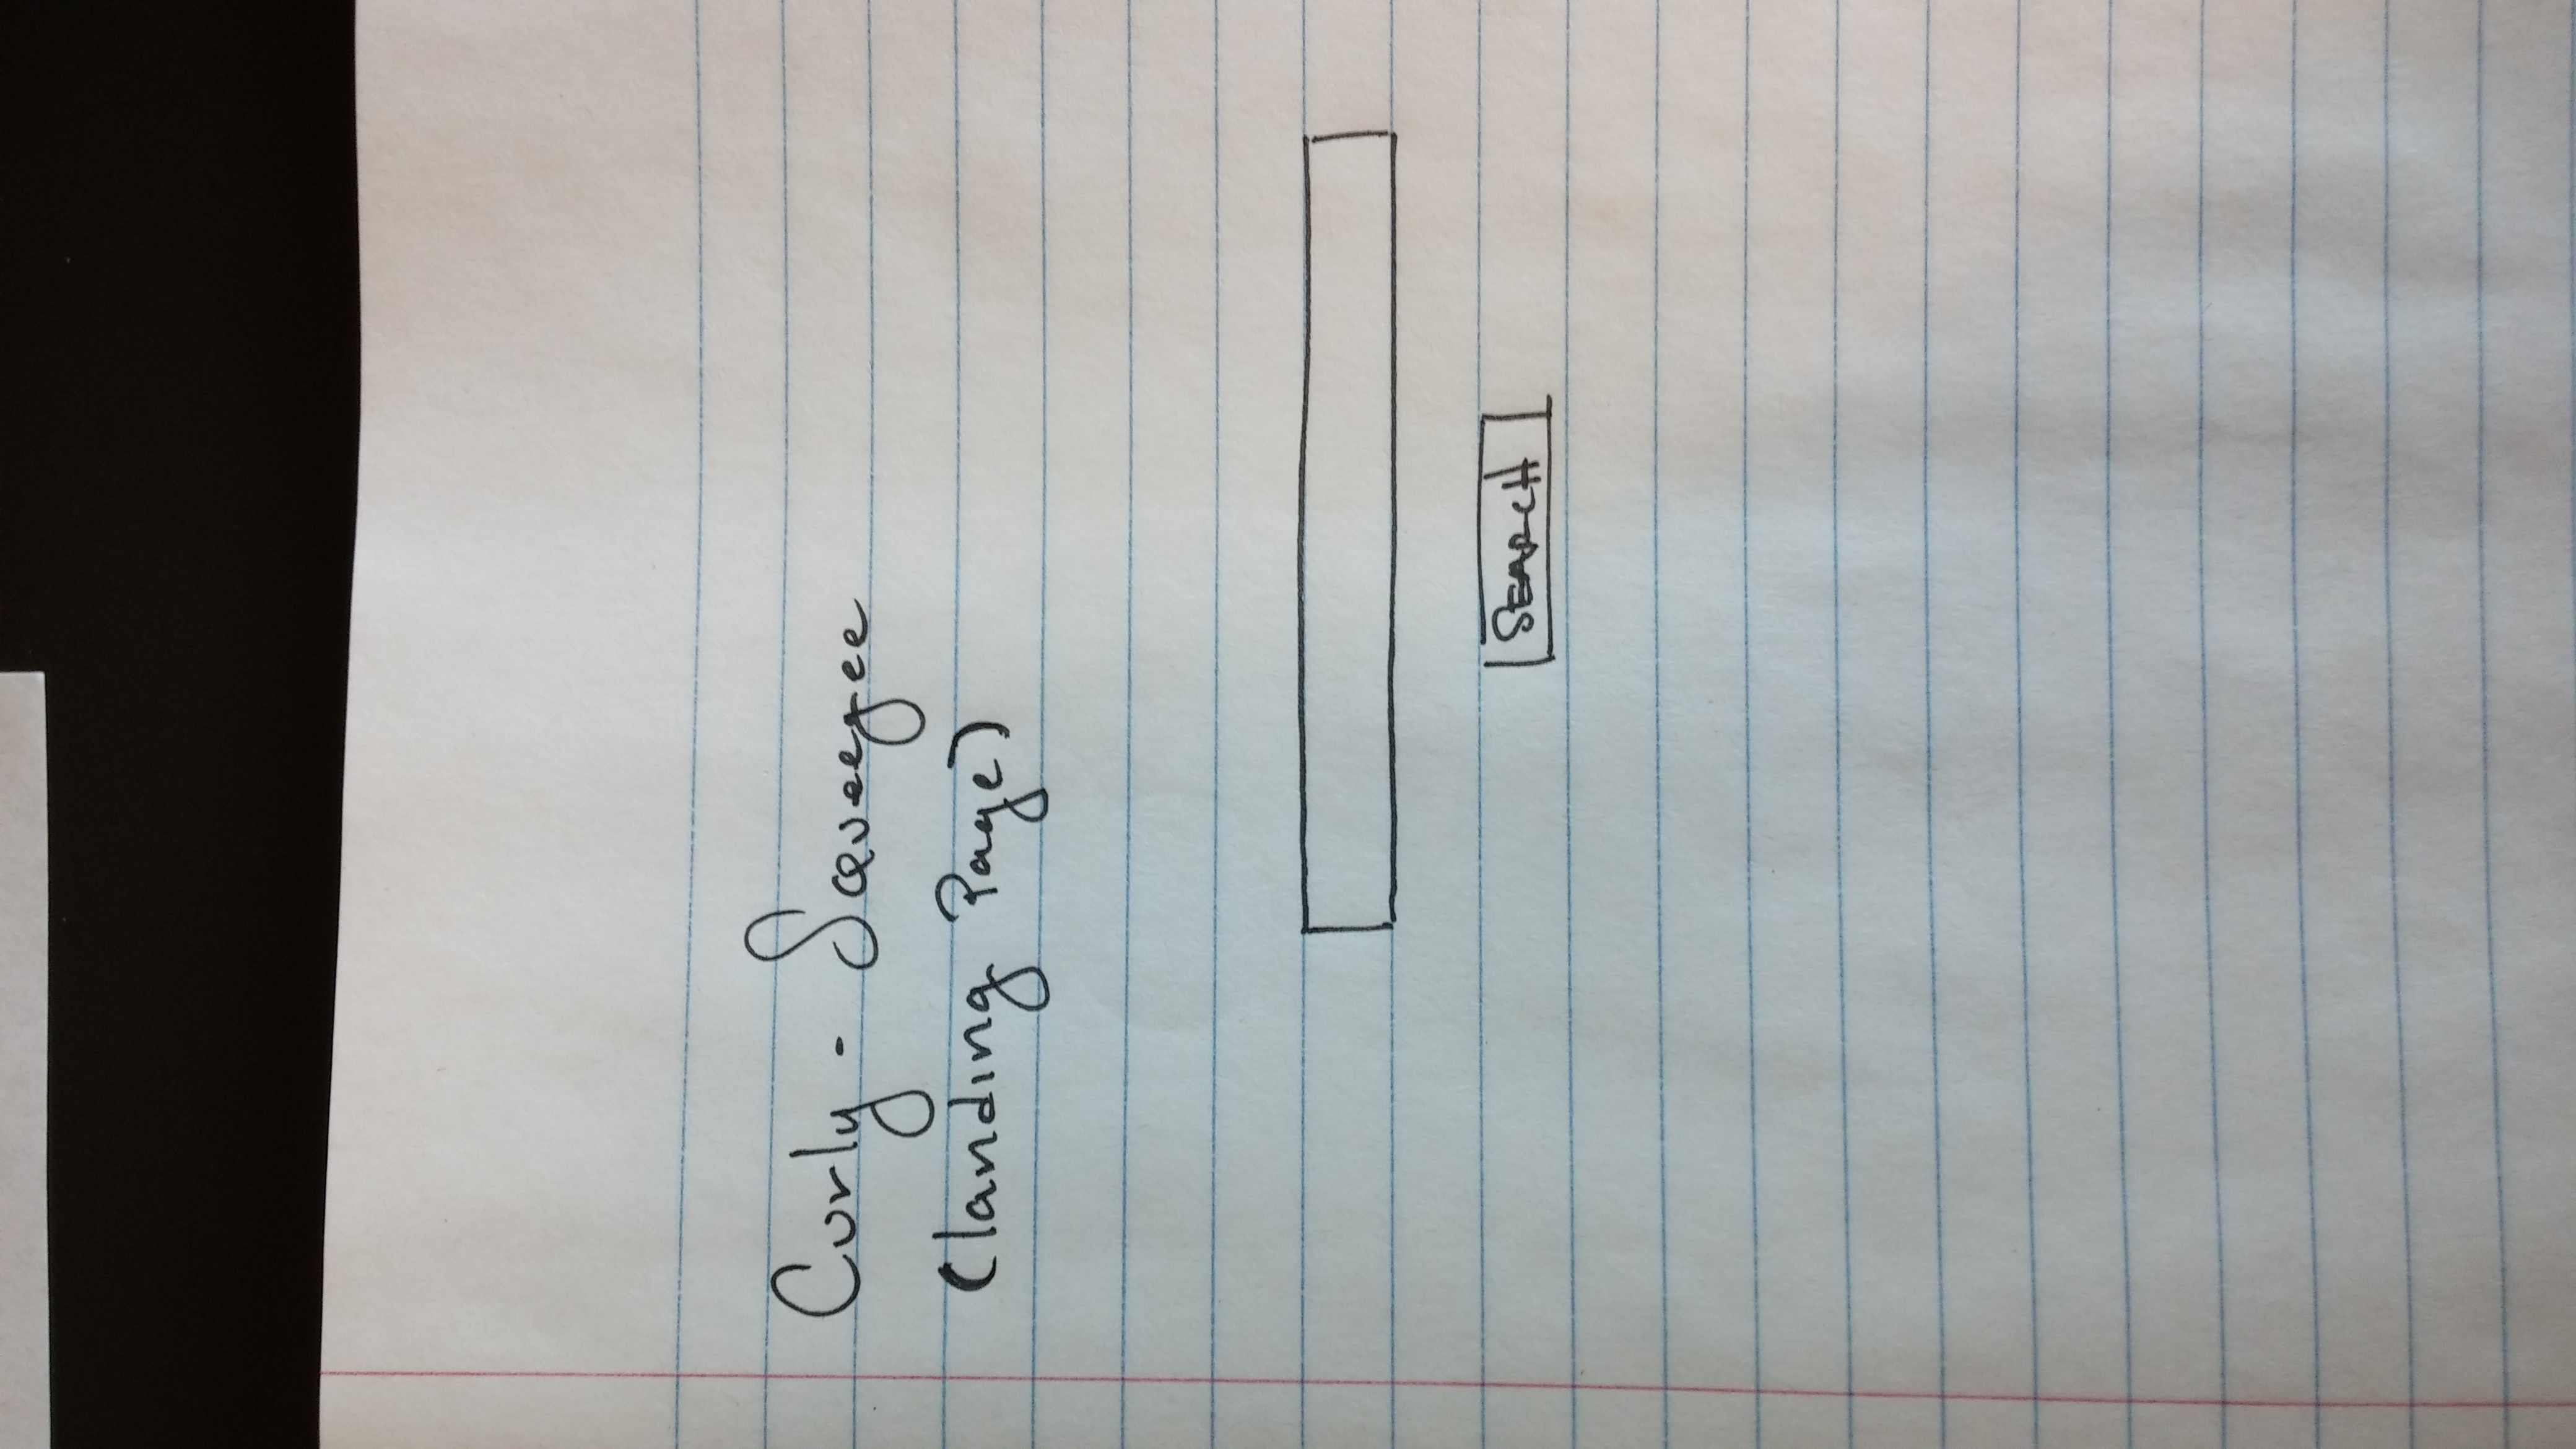 Curly - Squeegee
(landing Page)
SEARCH